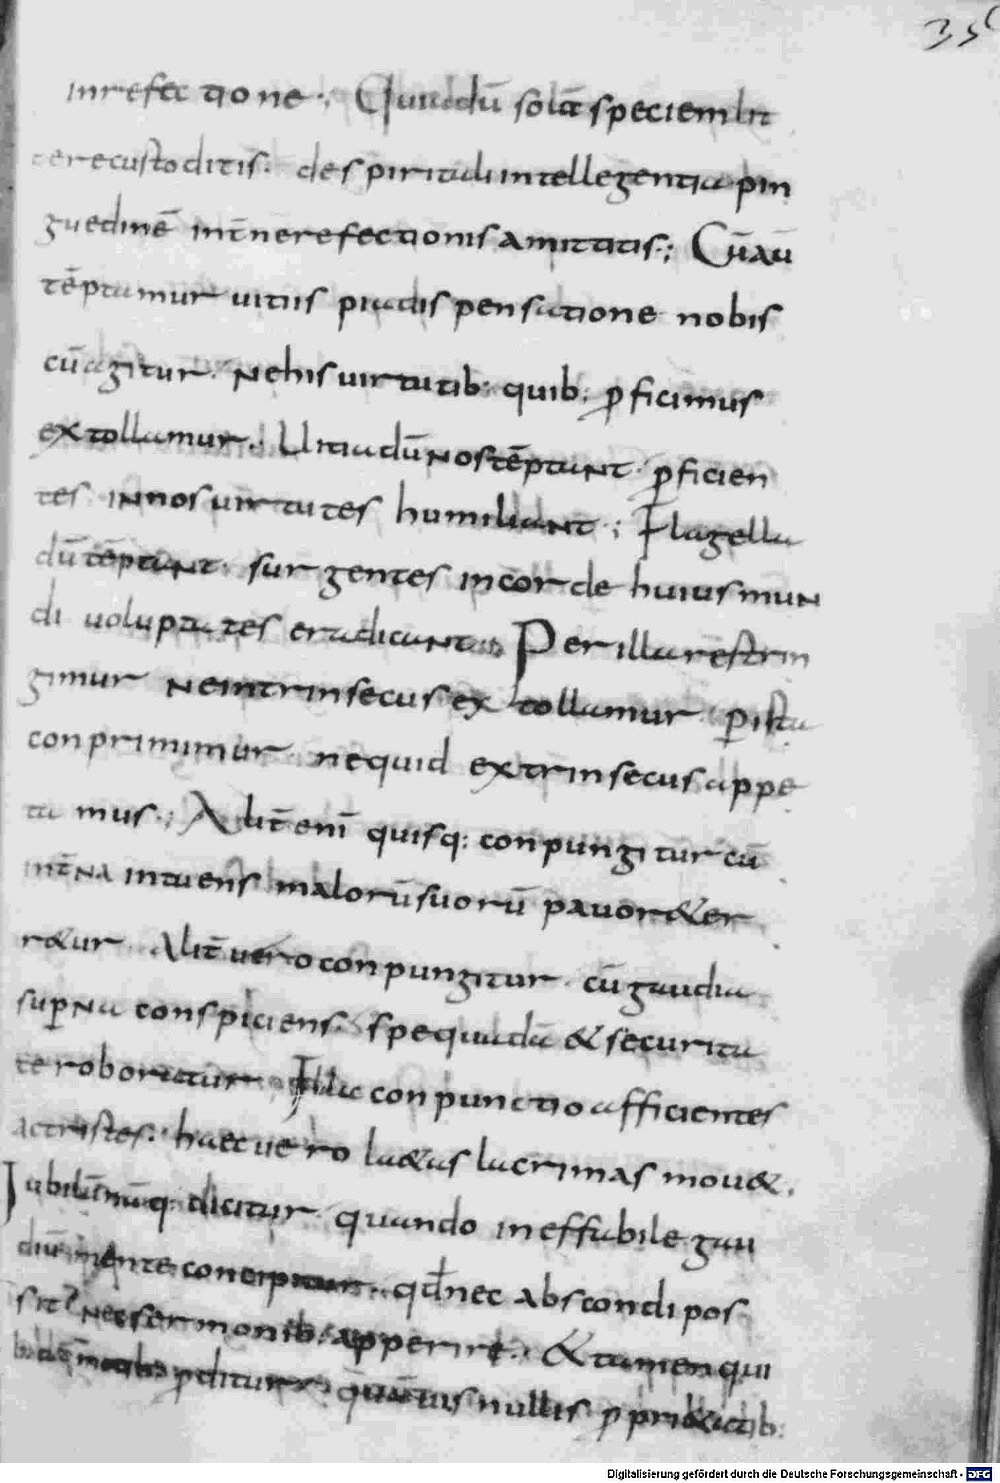 35
inrefectione·; Qui dū solā speciem litt
terecustoditis· despiritali intellegentia pin
guedinē int̄nerefectionis amittitis·; Cū aū
tēptamur uitiis pia dispensatione nobis
cū agitur· Ne his uirtutib: quib; ꝓficimus
extollamur·; Uitia dū nos tēptant· ꝓficien
tes in nos uirtutes humiliant·; Flagella
dū tēptant· surgentes incorde huius mun
di uoluptates eradicant·; Per illa restrin
gimur ne intrinsecus extollamur ꝑ ista
conprimimur nequid extrinsecus appe
tamus·; Alit̄ enī quisq: conpungitur cū
int̄na intuens malorū suorū pauore &er
r&ur· Alit̄ uero conpungitur· cū gaudia
suꝑna conspiciens· spe quadā & securita
te roboratur· Illa conpunctio afficientes
ac tristes· haec uero la&as lacrimas mou&·
Iubilū nāq: dicitur quando ineffabile gau
diū mente concipitur·; qđ nec abscondi pos
sit? Nec sermonib: apperire·; & tamen qui
ꝓditur· quāuis nullis ꝓpri&atib:
Digitalisierung gefördert durch die Deutsche Forschungsgemeinschaft - DFG